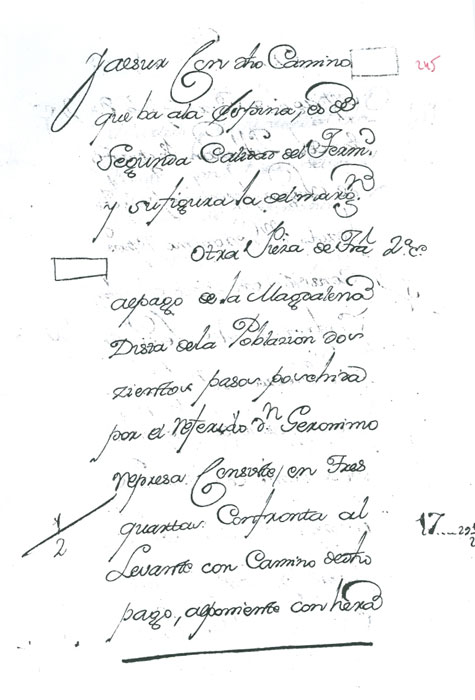 y al sur Con dho Camino 245
que ba a la Espina, es de
Segunda Calidad del Term.o
y su figura la del marg.n
Otra Pieza de Tra. 2.a c.
al pago de la Magdalena
Dista de la Poblazion dos
zientos pasos posehida
por el Referido Dn Geronimo
Represa Consiste, en Tres
quartas Confronta al 17
1/2
Levante con Camino de dho
pago, a poniente con hera